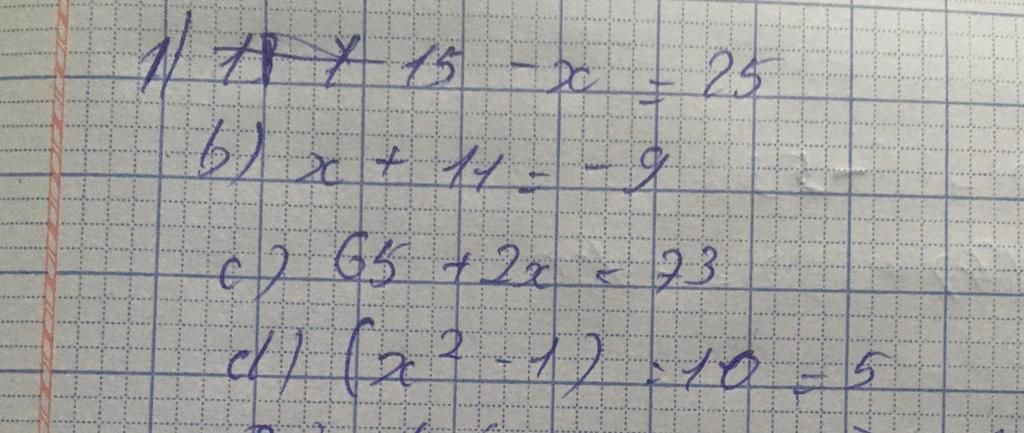 1) 15 - x = 25
b) x + 11 = - 9
c) 65 + 2x = 73
d) (x² - 1) : 10 = 5